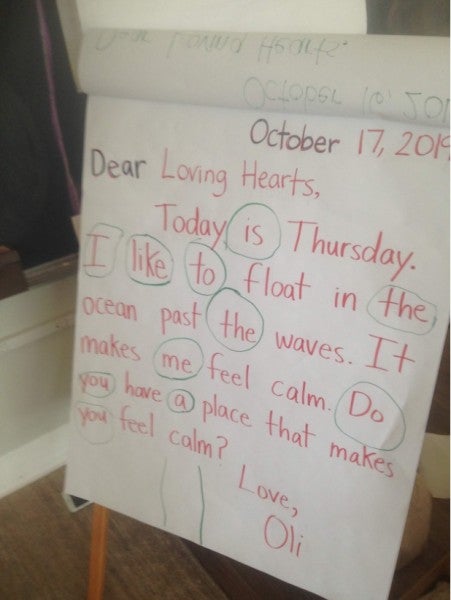 Dear Loving Hearts,
October 17, 2019
Dear Loving Hearts,
Today is Thursday.
I like to float in the
ocean past the waves. It
makes me feel calm. Do
you have a place that makes
you feel calm?
Love,
Oli